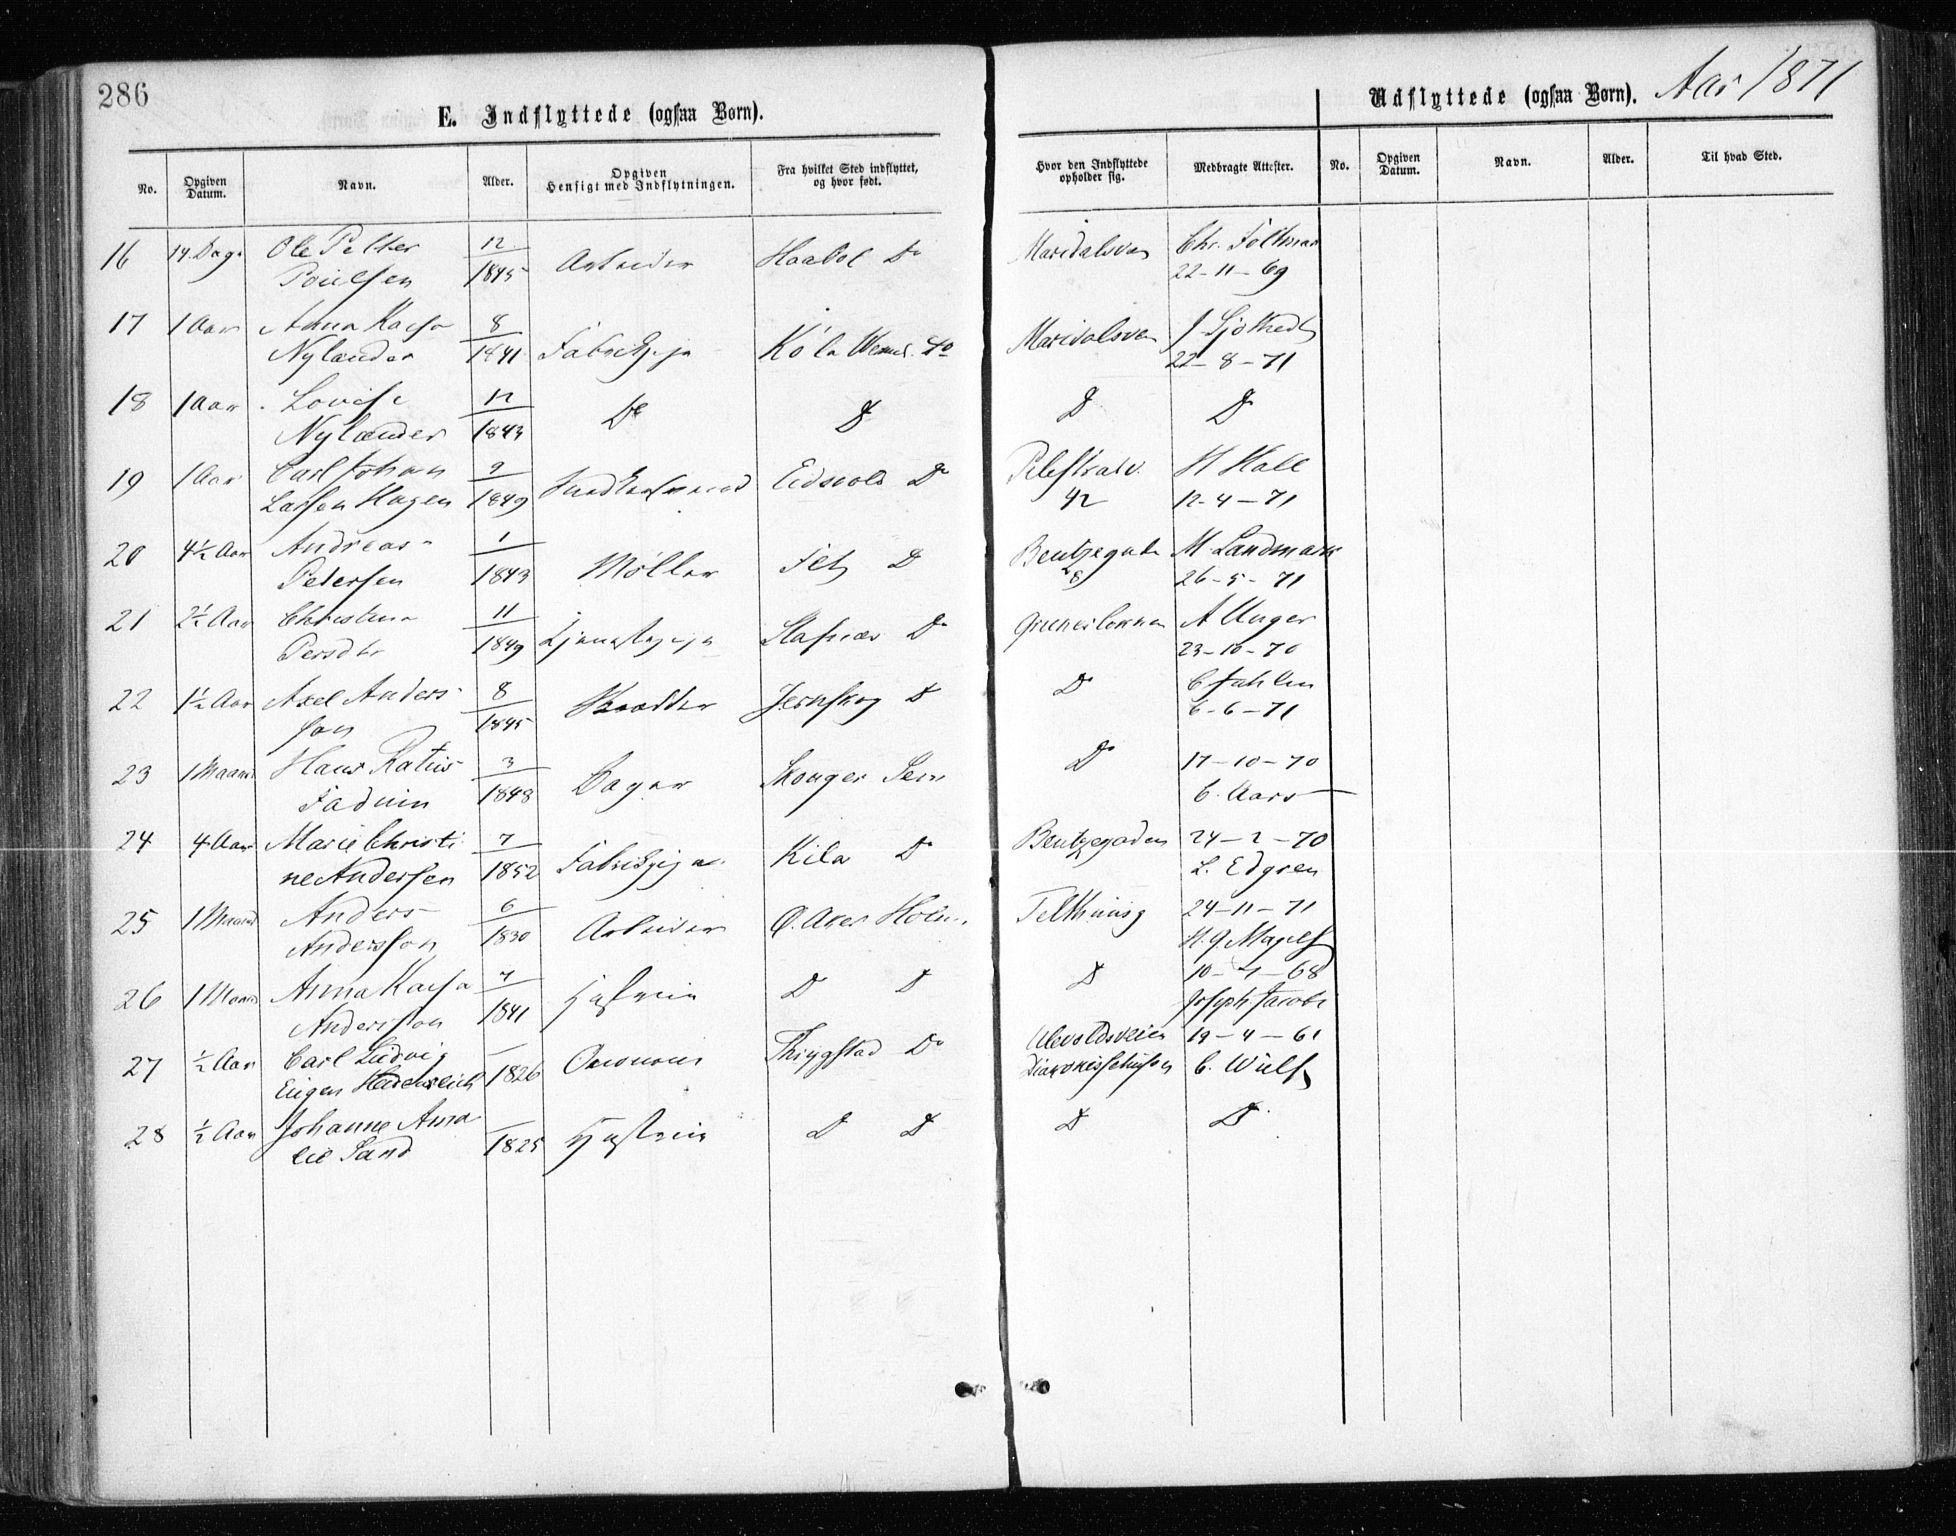 286
E. Indflyttede (ogsaa Børn).
Udflyttede (ogsaa Børn). Aar 1871
No. Opgiven Datum. Navn. Alder. Opgiven Hensigt med Indflytningen. Fra hvilket Sted indflyttet, og hvor født. Hvor den Indflyttede opholder sig. Medbragte Attester. No. Opgiven Datum. Navn. Alder. Til hvad Sted.
16 14 Dage Ole Petter 12 Arbeider Haabol Do Maridalsvn Chr.
Poulsen 1845 22-11-69
17 1 Aar Anna Kaisa 8 Fabrikpige Köla Do Maridalsvn J.
Nylander 1841 22-8-71
18 1 Aar Lovise 12 Do Do Do Do
Nylander 1843
19 1 Aar Carl Johan 9 Eidsvold Do Pilestræd. H Hall
Larsen Hagen 1849 42 12-4-71
20 4½ Aar Andreas 1 Møller Fet Do Bentzegade M. Landmark
Petersen 1843 8 26-5-71
21 2½ Aar Christina 11 Tjenestepige Do Grünerløkken A Unger
Persdtr 1849 23-10-70
22 1½ Aar Axel Anders- 8 Skrædder Jernskog Do Do C
son 1845 6-6-71
23 1 Maaned Hans 3 Bager Do 17-10-70
1848 C. Aars
24 4 Aar Marie Christi- 7 Fabrikpige Kila Do Bentzegaden 24-2-70
ne Andersen 1852 L. Edgren
25 1 Maaned Anders 6 Arbeider Telthusg 24-11-71
Andersson 1830
26 1 Maaned Anna Kaisa 7 Hustru Do Do Do 10-4-68
Andersson 1841 Joseph Jacobi
27 ½ Aar Carl Ludvig Oeconom Thrygstad Do Ulevoldsveien 19-4-61
Eugen Heidenreich 1826 C. Wulf
28 ½ Aar Johanne Ama- Hustru Do Do Do Do
lie Sand 1825